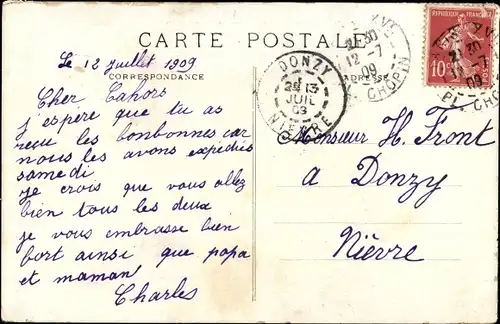 CARTE POSTALE
Le 12 juillet 1909
CORRESPONDANCE
ADRESSE
Cher Cahors
j'espère que tu as
reçu les bonbonnes car
nous les avons expédiés
samedi
je crois que vous allez
bien tous les deux
je vous embrasse bien
fort ainsi que papa
et maman
Charles
Monsieur H. Front
a Donzy
Nièvre
DONZY
13
JUIL
09
NIEVRE
30
12-7
09
PL. CHOPIN
10
30
09
PL. CHOPIN